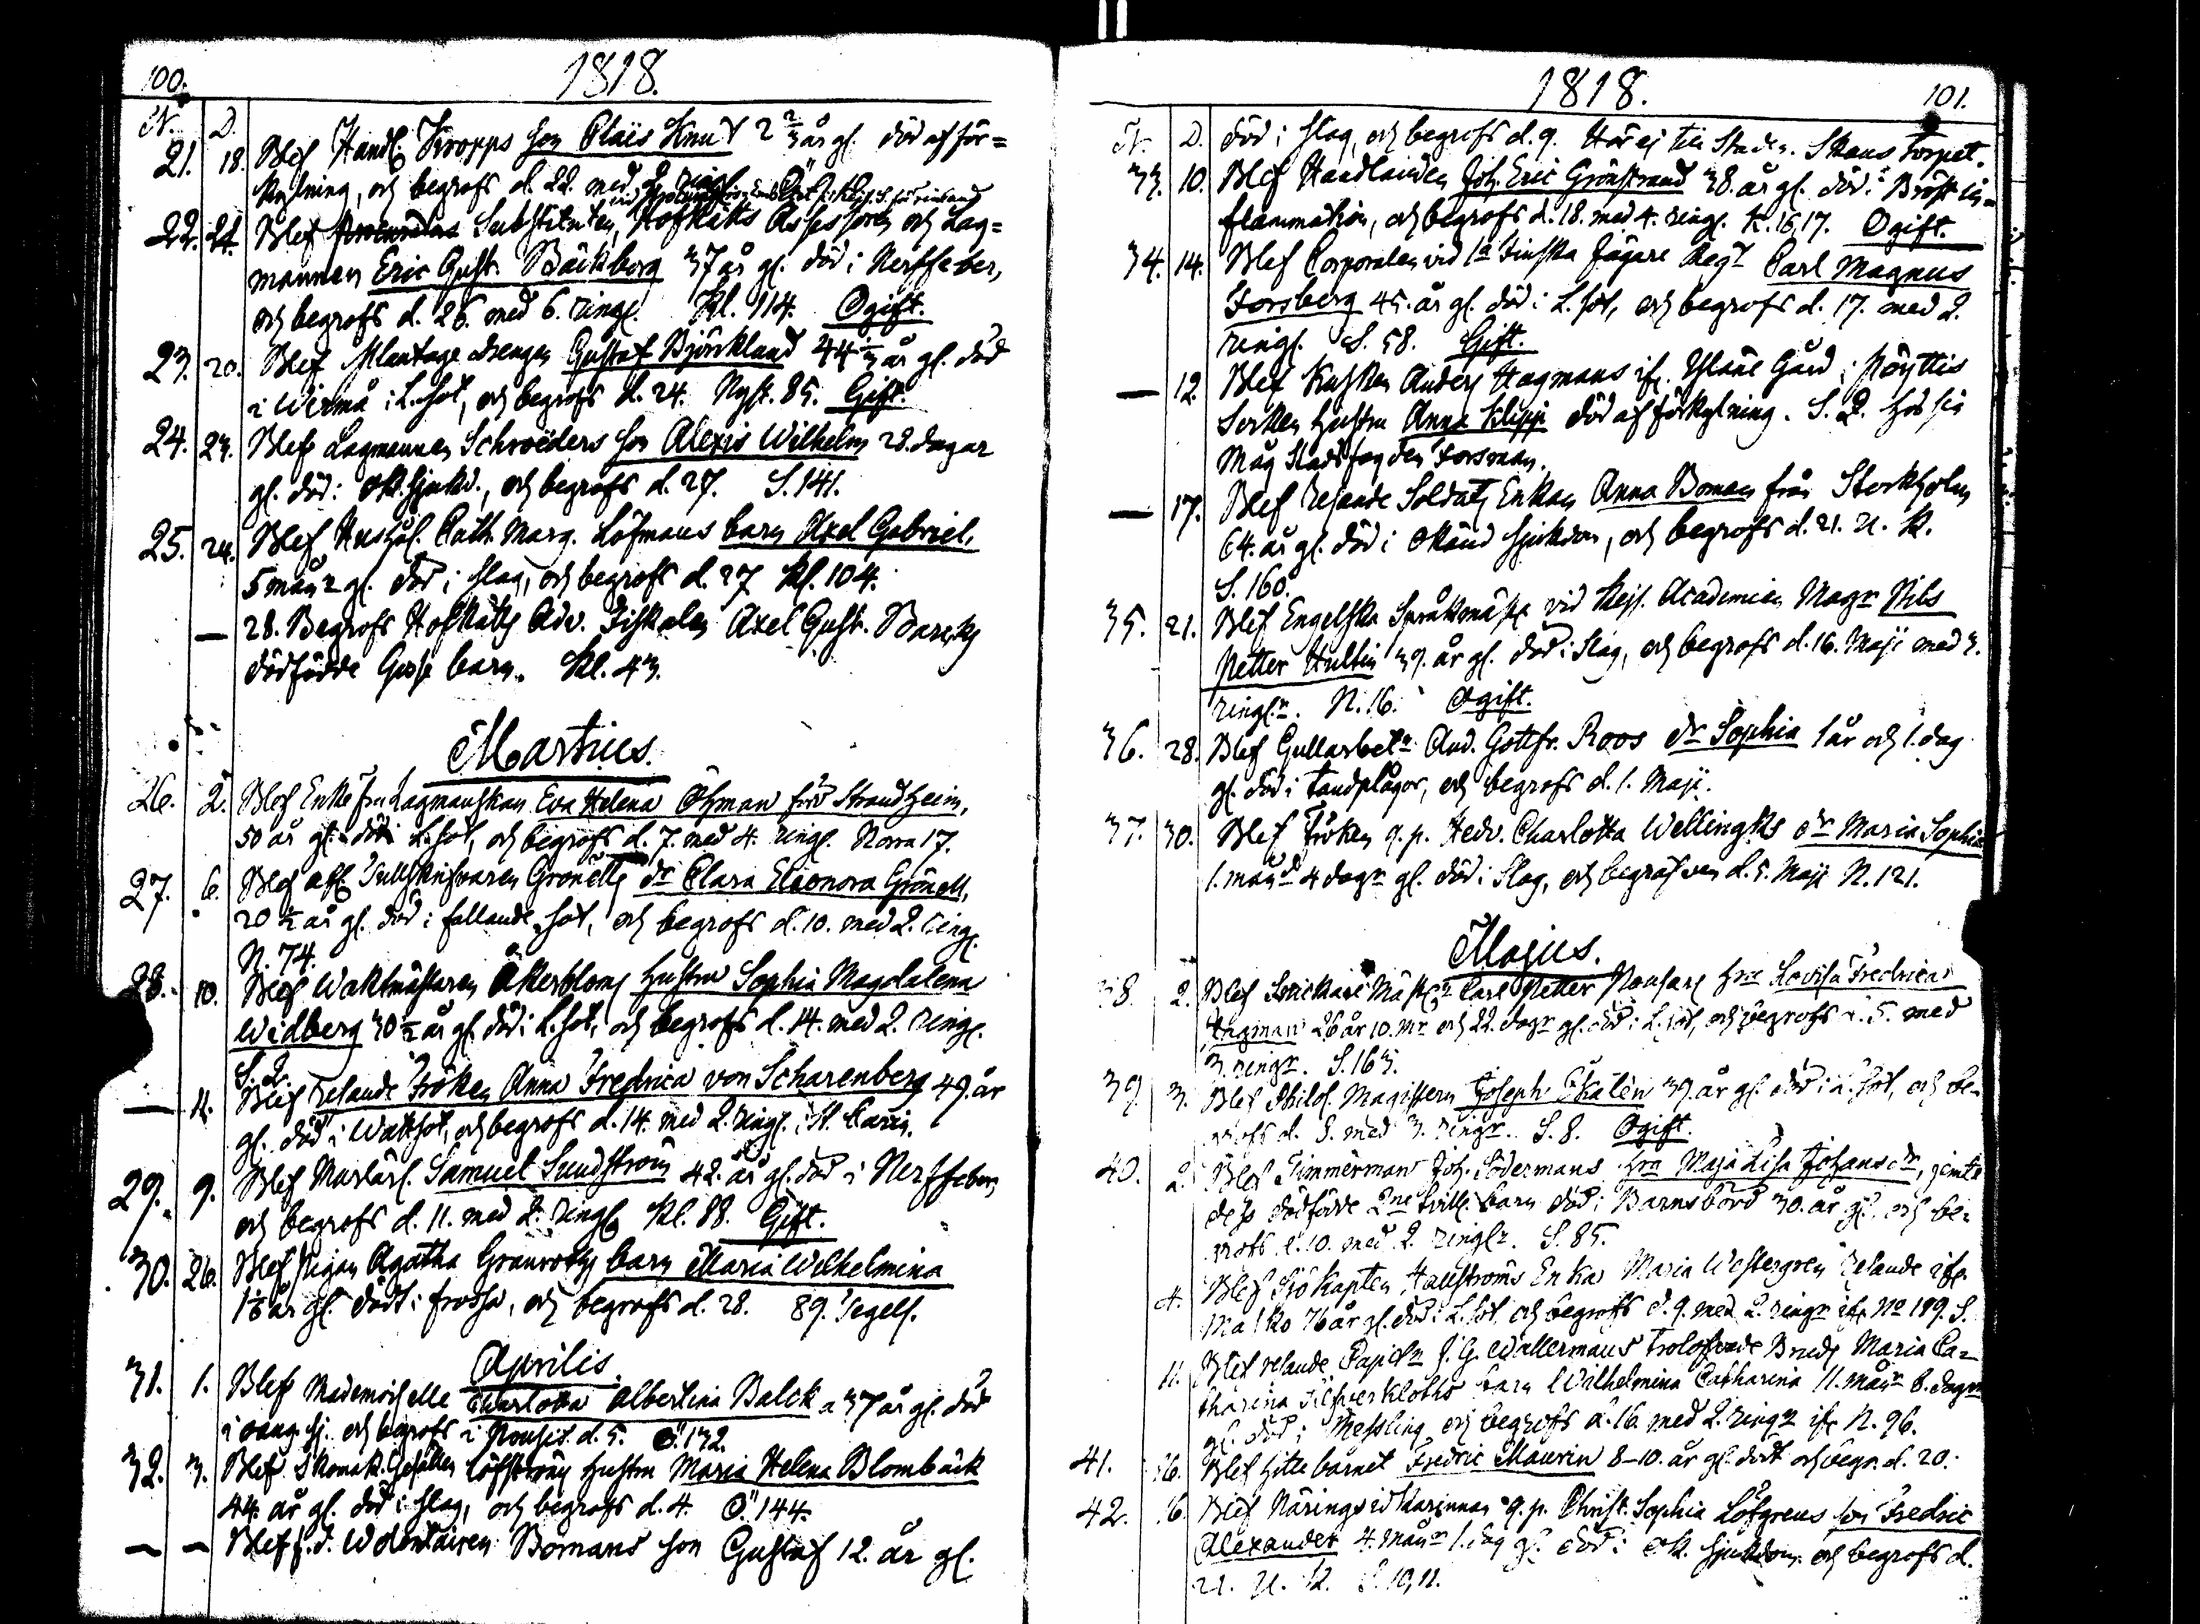 100. 1818.
N. D.
21. 18. Blef Handl. Kropps son Claës Knut 2 2/3 år gl. död af för=
kylning, och begrofs d. 22. med 2. ringl. Ö
22. 21. Blef Substituten, Hofrätts Assessoren och Lag=
mannen Eric Gust. Bäckborg 37 år gl. död i Nerffeber,
och begrofs d. 26. med 6. ringl. Kl. 114. Ogift.
23. 20. Blef Plantage drengen Gustaf Björklund 44 1/3 år gl. död
i Wirmå i L.sot, och begrofs d. 24. Nyst. 85. Gift.
24. 23. Blef Lagmannen Schroëders son Alexis Wilhelm 28. dagar
gl. död i ok. sjukd., och begrofs d. 27. S. 141.
25. 24. Blef Hushål. Cath. Marg. Löfmans barn Axel Gabriel,
5 mån gl. död i slag, och begrofs d. 27 Kl. 104.
— 28. Begrofs Hofrätts Adv. Fiskalen Axel Gust.
dödfödde Gosse barn. Kl. 43.
Martius.
26. 2. Blef Enke fru Lagmanskan Eva Helena Öhman född Strandheim,
50 år gl. död i L.sot, och begrofs d. 7. med 4. ringl. Norra 17.
27. 6. Blef afl. Tullskrifvaren Grönells dr Clara Eleonora Grönell,
20 1/2 år gl. död i fallande sot, och begrofs d. 10. med 2. ringl.
N. 74.
28. 10. Blef Waktmästaren Åkerbloms hustru Sophia Magdalena
Widberg 30 1/2 år gl. död i L.sot, och begrofs d. 14. med 2. ringl.
S. 2.
— 11. Blef resande Fröken Anna Fredrica von Scharenberg 49. år
gl. död i Wattsot, och begrofs d. 14. med 2. ringl. i St. Carin.
29. 9. Blef Murlärl. Samuel Sundström 42. år gl. död i Nerffeber,
och begrofs d. 11. med 2. ringl. Kl. 88. Gift.
30. 26. Blef Pigan Agatha Granroths barn Maria Wilhelmina
år gl. dödt i frossa, och begrofs d. 28. 89. Segelf.
Aprilis.
31. 1. Blef Mademoiselle Charlotta Albertina Balck 37 år gl. död
i och begrofs i d. 5. Ö. 132.
32. 3. Blef Skomak. Gesällen Löfströms hustru Maria Helena Blombäck
44. år gl. död i slag, och begrofs d. 4. Ö. 144.
— — Blef Bomans son Gustaf 12. år gl.
1818. 101.
N. D. död i slag, och begrofs d. 9. Hör ej til Staden. Skans Torpet.
33. 10. Blef Handlanden Joh. Eric Grönstrand 38. år gl. död i Bröst in=
flammation, och begrofs d. 18. med 4. ringl. K. 16,17. Ogift.
34. 14. Blef Corporalen vid 1a Finska Jägare Regt Carl Magnus
Forsberg 45. år gl. död i L.sot, och begrofs d. 17. med 2.
ringl. S. 58. Gift.
— 12. Blef Kusken Anders Hagmans ifr. Gård i Pöyttis
Socken hustru Anna död af förkylning. S. 2. hos sin
Måg Stadsfogden Forsman.
— 17. Blef resande Soldats Enkan Anna Boman från Stockholm
64. år gl. död i okänd sjukdom, och begrofs d. 21. u. k.
S. 160.
35. 21. Blef Engelska Språkmäst. vid Kejs. Academien Magr Nils
Petter Hultin 39. år gl. död i slag, och begrofs d. 16. Maji med 3.
ringl.r. N. 16. Ogift.
36. 28. Blef Gullarbetr And. Gottfr. Roos dr Sophia 1 år och 1. dag
gl. död i tandplågor, och begrofs d. 1. Maji.
37. 30. Blef Fröken q.p. Hedv. Charlotta Wellingks dr Maria Sophia
1. månd 4 dagr gl. död i slag, och begrafven d. 5. Maji N. 121.
Majus.
38. 2. Blef Carl Petter hru Lovisa Fredrica
Hagman 26 år 10. mr och 22. dagr gl. död i L.sot, och begrofs d. 5. med
3. ringr. S. 163.
39. 3. Blef Philos. Magistern Joseph 39. år gl. död i L.sot, och be=
grofs d. 8. med 3. ringr. S. 8. Ogift.
40. 2. Blef Timmerman Joh. Södermans hru Maja Lisa Johansdr, jemte
dess dödfödde 2ne barn död i Barnsbörd 30. år gl. och be=
grofs d. 10. med 2. ringlr. S. 85.
4. Blef Sjö Kapten Enka Maria Westergren resande ifr.
76 år gl. död i L.sot och begrofs d. 9. med 2. ringr ifr No 199. S.
11. Blef resande J. G. Wallermans trolofvade Bruds Maria Ca=
tharina barn Wilhelmina Catharina 11. månr 8. dagar
gl. död i Messling, och begrofs d. 16. med 2. ringr ifr N. 96.
41. 16. Blef hittebarnet Fredric Maurin 8–10. år gl. dödt och begr. d. 20.
42. 16. Blef Näringsidkarinnan q.p. Christ. Sophia Löfgrens son Fredric
Alexander 4. månr 1. dag gl. död i ok. sjukdom och begrofs d.
21. u. k. S. 10,11.